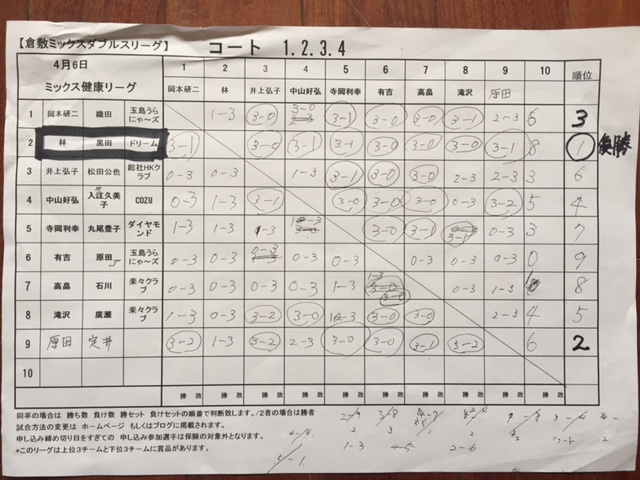 【倉敷ミックスダブルスリーグ】 コート 1.2.3.4
4月6日 1 2 3 4 5 6 7 8 9 10 順位
ミックス健康リーグ 岡本研二 林 井上弘子 中山好弘 寺岡利幸 有吉 高畠 滝沢 原田
1 岡本研二 織田 玉島うらにゃ~ズ 1-3 3-0 3-0 3-1 3-0 3-0 3-1 2-3 6 3
2 林 黒田 ドリーム 3-1 3-0 3-1 3-1 3-0 3-0 3-0 3-1 8 1 優勝
3 井上弘子 松田公也 総社HKクラブ 0-3 0-3 1-3 3-1 3-0 3-0 2-3 2-3 3 6
4 中山好弘 久美子 COZU 0-3 1-3 3-1 3-0 3-0 3-0 0-3 3-2 5 4
5 寺岡利幸 丸尾豊子 ダイヤモンド 1-3 1-3 1-3 3-0 3-1 3-1 0-3 3 7
6 有吉 原田 玉島うらにゃ~ズ 0-3 0-3 0-3 0-3 0-3 0-3 0-3 0-3 0 9
7 高畠 石川 楽々クラブ 0-3 0-3 0-3 0-3 1-3 3-0 0-3 1-3 8
8 滝沢 廣瀬 楽々クラブ 1-3 0-3 3-2 3-0 3-0 3-0 2-3 4 5
9 原田 定井 3-2 1-3 3-2 2-3 3-0 3-0 3-1 3-2 6 2
10
勝 敗 勝 敗 勝 敗 勝 敗 勝 敗 勝 敗 勝 敗 勝 敗 勝 敗 勝 敗
同率の場合は 勝ち数 負け数 勝セット 負けセットの順番で判断致します。/2者の場合は勝者
試合方法の変更は ホームページ もしくはブログに掲載されます。
申し込み締め切り日をすぎての 申し込み参加選手は保険の対象外となります。
*このリーグは上位3チームと下位3チームに賞品があります。
1-3 4-5 2-6